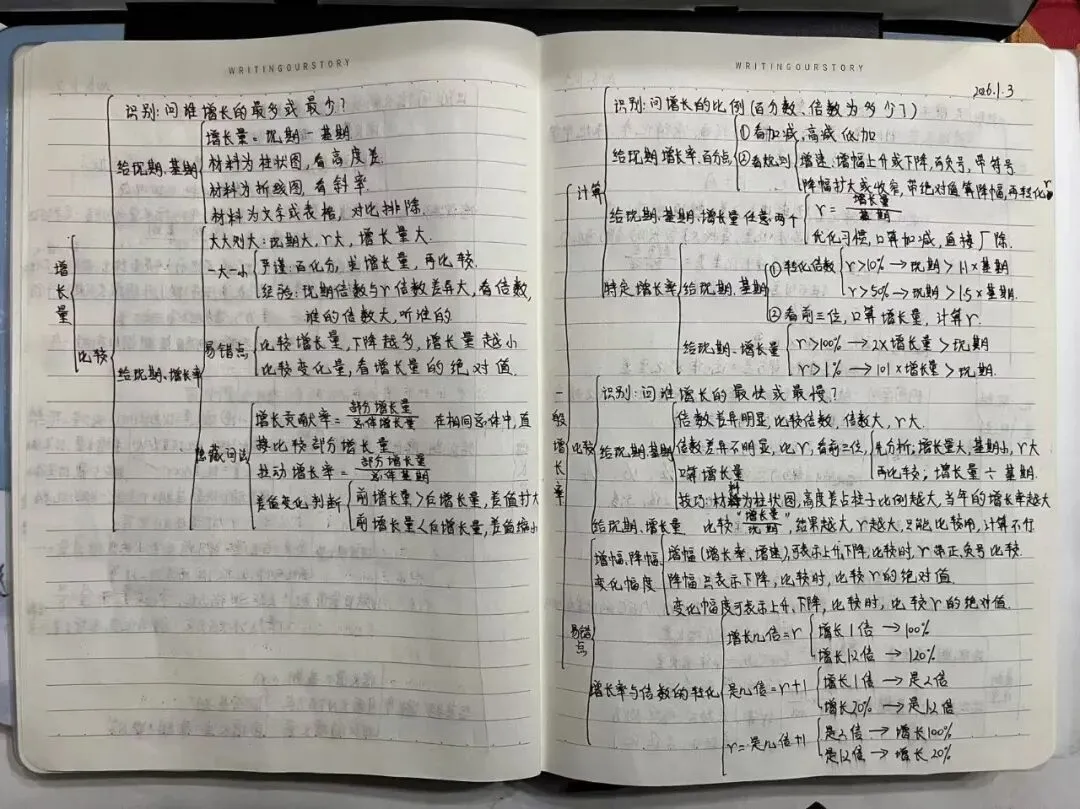 WRITINGOURSTORY
识别:问谁增长的最多或最少?
给现期.基期
增长量=现期-基期
材料为柱状图,看高度差
材料为折线图,看斜率.
材料为文字或表格,对比排除
增长量
比较
给现期、增长率
大大则大:现期大,r大,增长量大.
一大一小
严谨:百化分,求增长量,再比较.
经验:现期倍数与r倍数差异大,看倍数,
谁的倍数大,听谁的
易错点
比较增长量,下降越多,增长量越小
比较变化量,看增长量的绝对值.
隐藏问法
增长贡献率=部分增长量/总体增长量 在相同总体中,直
接比较部分增长量
拉动增长率=部分增长量/总体基期
差值变化判断
前增长量>后增长量,差值扩大
前增长量<后增长量,差值缩小
WRITINGOURSTORY
2026.1.3
识别:问增长的比例(百分数、倍数为多少?)
计算
给现期增长率.百分点
①看加减,高减低加
②看规则
增速、增幅上升或下降,有负号,带符号
降幅扩大或收窄,带绝对值算降幅,再转化r
给现期.基期.增长量任意两个
r=增长量/基期
优化习惯,口算加减,直接厂除.
特定增长率
给现期、基期
①转化倍数
r>10%→现期>1.1×基期
r>50%→现期>1.5×基期.
②看前三位,口算增长量,计算r.
给现期、增长量
r>100%→2×增长量>现期
r>1%→101×增长量>现期.
一般增长率
比较
识别:问谁增长的最快或最慢?
给现期.基期
倍数差异明显,比较倍数,倍数大,r大.
倍数差异不明显,比r,看前三位,
口算增长量
先分析:增长量大,基期小,r大
再比较:增长量÷基期.
技巧:材料为柱状图,高度差占柱子比例越大,当年的增长率越大
给现期.增长量 比较"增长量/现期",结果越大,r越大,只能比较用,计算不行
易错点
增幅、降幅、
变化幅度
增幅(增长率、增速),可表示上升、下降,比较时,r带正、负号比较.
降幅只表示下降,比较时,比较r的绝对值.
变化幅度可表示上升、下降,比较时,比较r的绝对值.
增长率与倍数的转化
增长几倍=r
增长1倍→100%
增长1.2倍→120%
是几倍=r+1
增长1倍→是2倍
增长20%→是1.2倍
r=是几倍+1
是2倍→增长100%
是1.2倍→增长20%